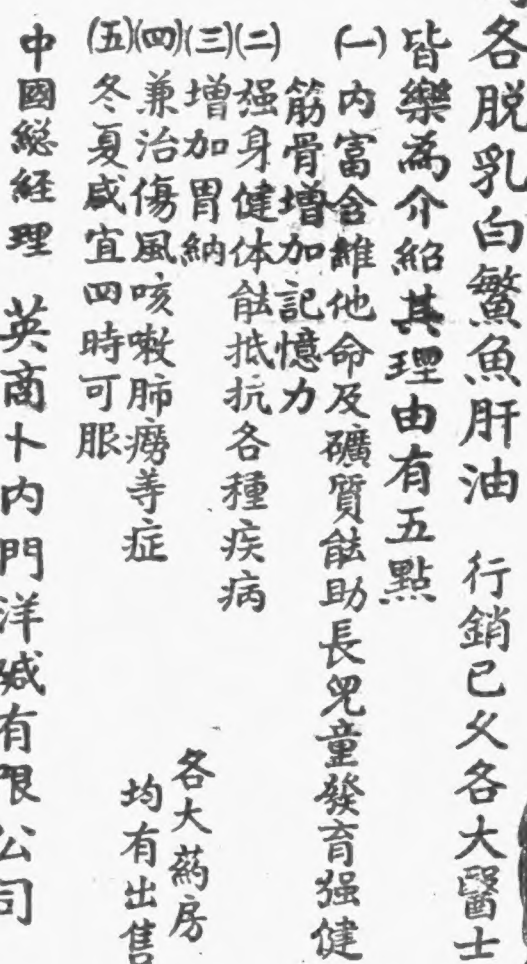 各脱乳白鰵魚肝油 行銷已久各大醫士
皆樂為介紹其理由有五點
(一)內富含維他命及礦質能助長兒童發育强健
筋骨增加記憶力
(二)强身健体能抵抗各種疾病
(三)增加胃納
(四)兼治傷風咳嗽肺癆等症
(五)冬夏咸宜四時可服
各大葯房
均有出售
中國総経理 英商卜內門洋碱有限公司